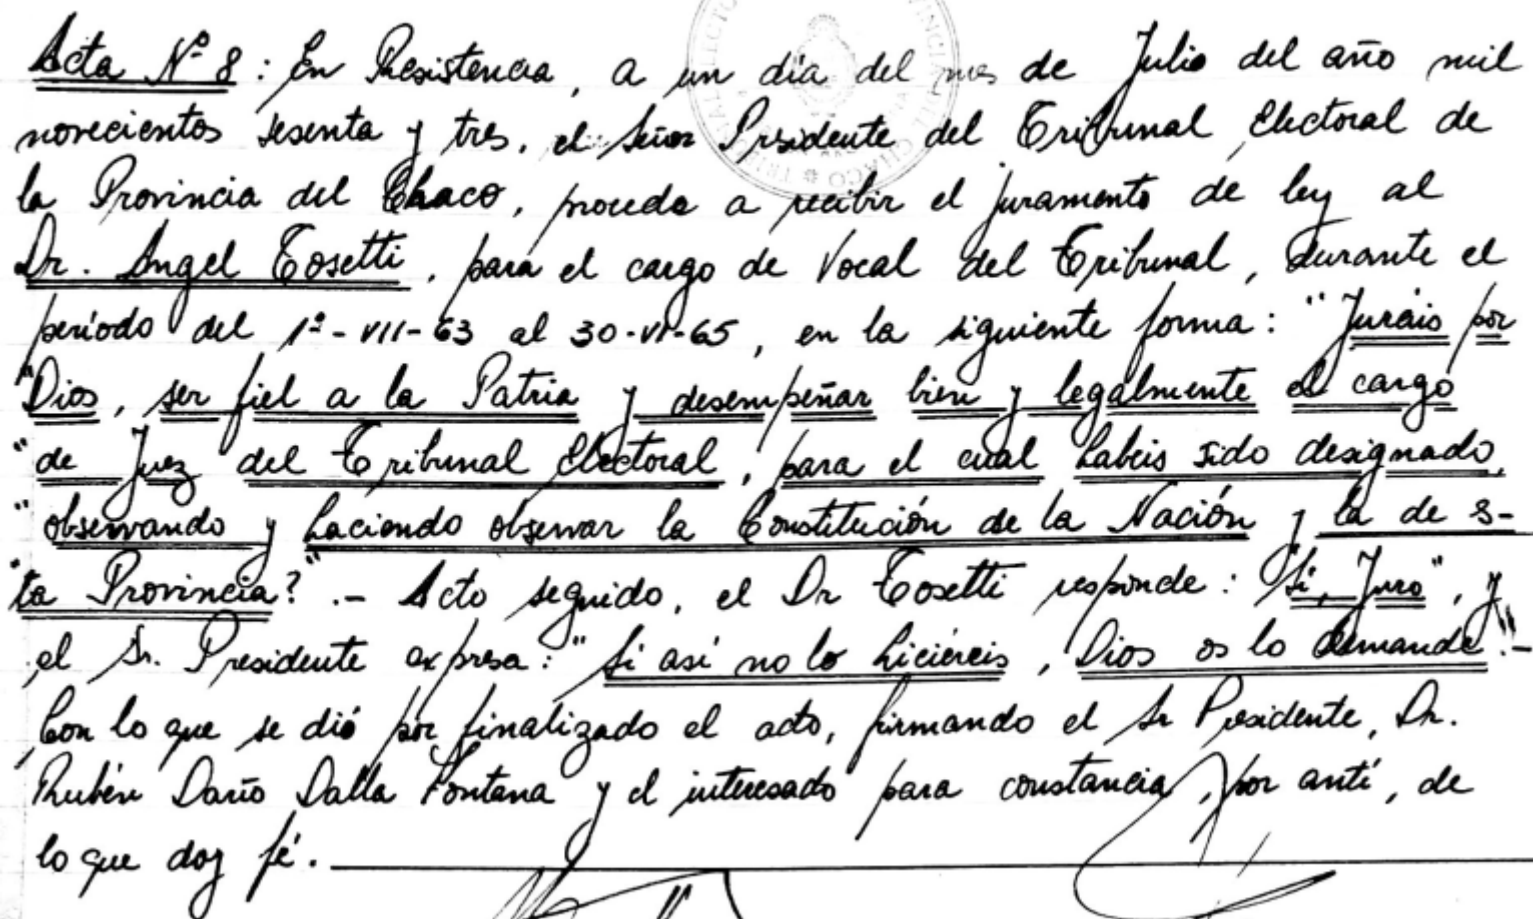 Acta Nº 8: En Resistencia, a un día del mes de Julio del año mil
novecientos sesenta y tres, el Señor Presidente del Tribunal Electoral de
la Provincia del Chaco, procede a recibir el juramento de ley al
Dr. Angel Tosetti, para el cargo de Vocal del Tribunal, durante el
período del 1º-VII-63 al 30-VI-65, en la siguiente forma: "Juráis por
"Dios, ser fiel a la Patria y desempeñar bien y legalmente el cargo
"de Juez del Tribunal Electoral, para el cual habeis sido designado,
"observando y haciendo observar la Constitución de la Nación y la de s-
"ta Provincia?".- Acto seguido, el Dr Tosetti responde: "Si, Juro", y
el Sr. Presidente expresa: "Si así no lo hiciéreis, Dios os lo demande".-
Con lo que se dió por finalizado el acto, firmando el Sr Presidente, Dr.
Rubén Darío Dalla Fontana y el interesado para constancia, por antí, de
lo que doy fé.